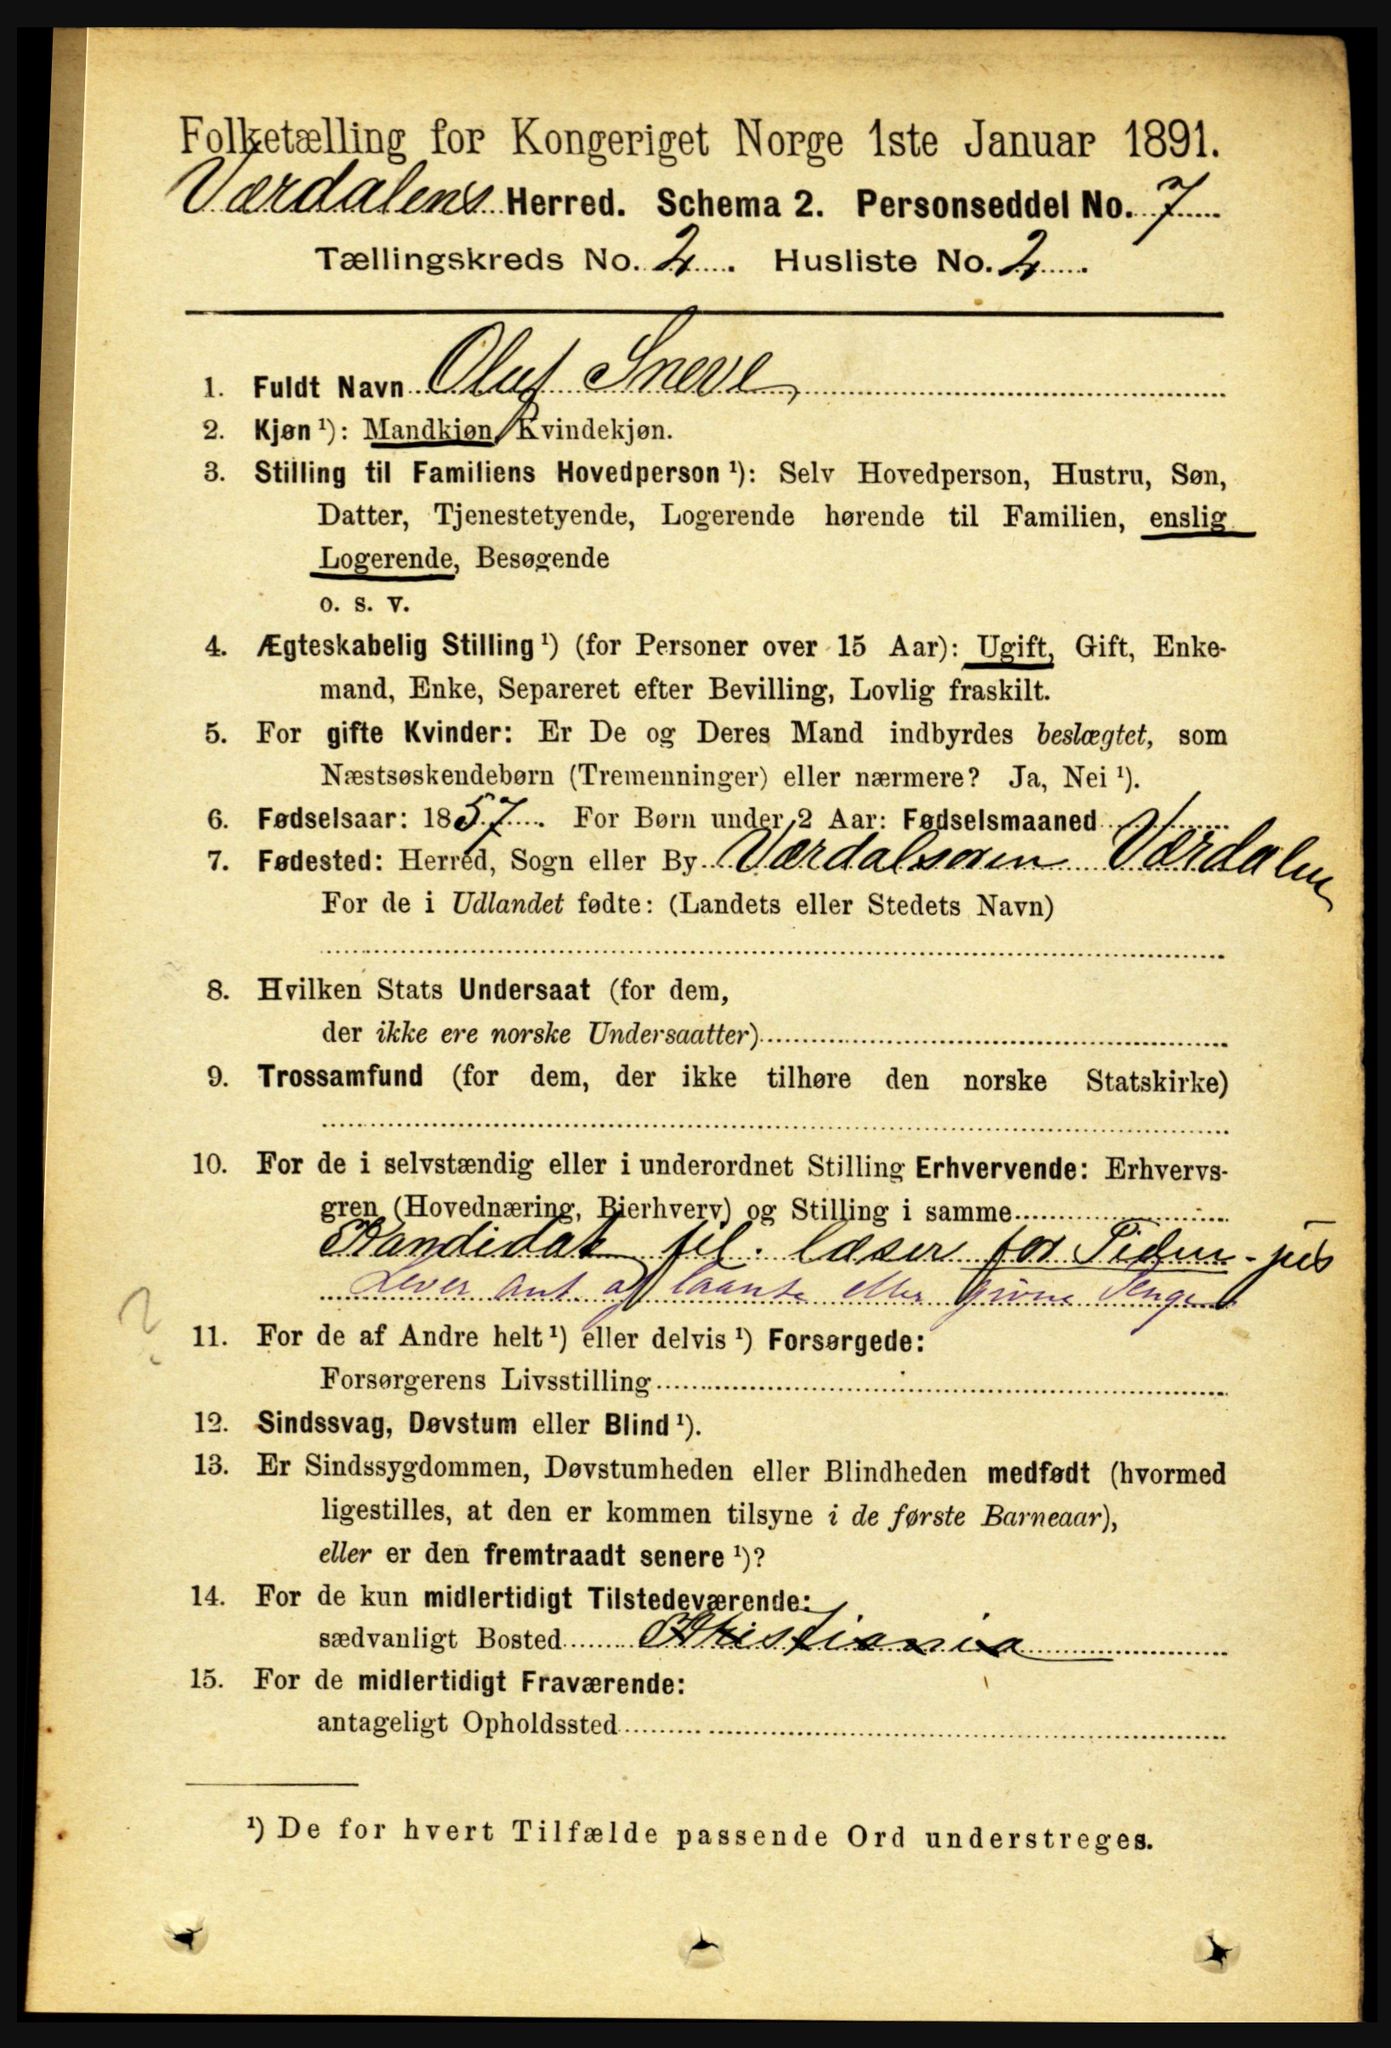 Folketælling for Kongeriget Norge 1ste Januar 1891.
Værdalens Herred. Schema 2. Personseddel No. 7
Tællingskreds No. 2. Husliste No. 2
1. Fuldt Navn Oluf Sneve
2. Kjøn ¹): Mandkjøn, Kvindekjøn.
3. Stilling til Familiens Hovedperson ¹): Selv Hovedperson, Hustru, Søn,
Datter, Tjenestetyende, Logerende hørende til Familien, enslig
Logerende, Besøgende
o. s. v.
4. Ægteskabelig Stilling ¹) (for Personer over 15 Aar): Ugift, Gift, Enke-
mand, Enke, Separeret efter Bevilling, Lovlig fraskilt.
5. For gifte Kvinder: Er De og Deres Mand indbyrdes beslægtet, som
Næstsøskendebørn (Tremenninger) eller nærmere? Ja, Nei ¹).
6. Fødselsaar: 1857. For Børn under 2 Aar: Fødselsmaaned
7. Fødested: Herred, Sogn eller By Værdalsøren Værdalen
For de i Udlandet fødte: (Landets eller Stedets Navn)
8. Hvilken Stats Undersaat (for dem,
der ikke ere norske Undersaatter)
9. Trossamfund (for dem, der ikke tilhøre den norske Statskirke)
10. For de i selvstændig eller i underordnet Stilling Erhvervende: Erhvervs-
gren (Hovednæring, Bierhverv) og Stilling i samme
Kandidat fil. læser for Tiden jus
Lever ant. af laante eller givne Penge
?
11. For de af Andre helt ¹) eller delvis ¹) Forsørgede:
Forsørgerens Livsstilling
12. Sindssvag, Døvstum eller Blind ¹).
13. Er Sindssygdommen, Døvstumheden eller Blindheden medfødt (hvormed
ligestilles, at den er kommen tilsyne i de første Barneaar),
eller er den fremtraadt senere ¹)?
14. For de kun midlertidigt Tilstedeværende:
sædvanligt Bosted Kristiania
15. For de midlertidigt Fraværende:
antageligt Opholdssted
¹) De for hvert Tilfælde passende Ord understreges.